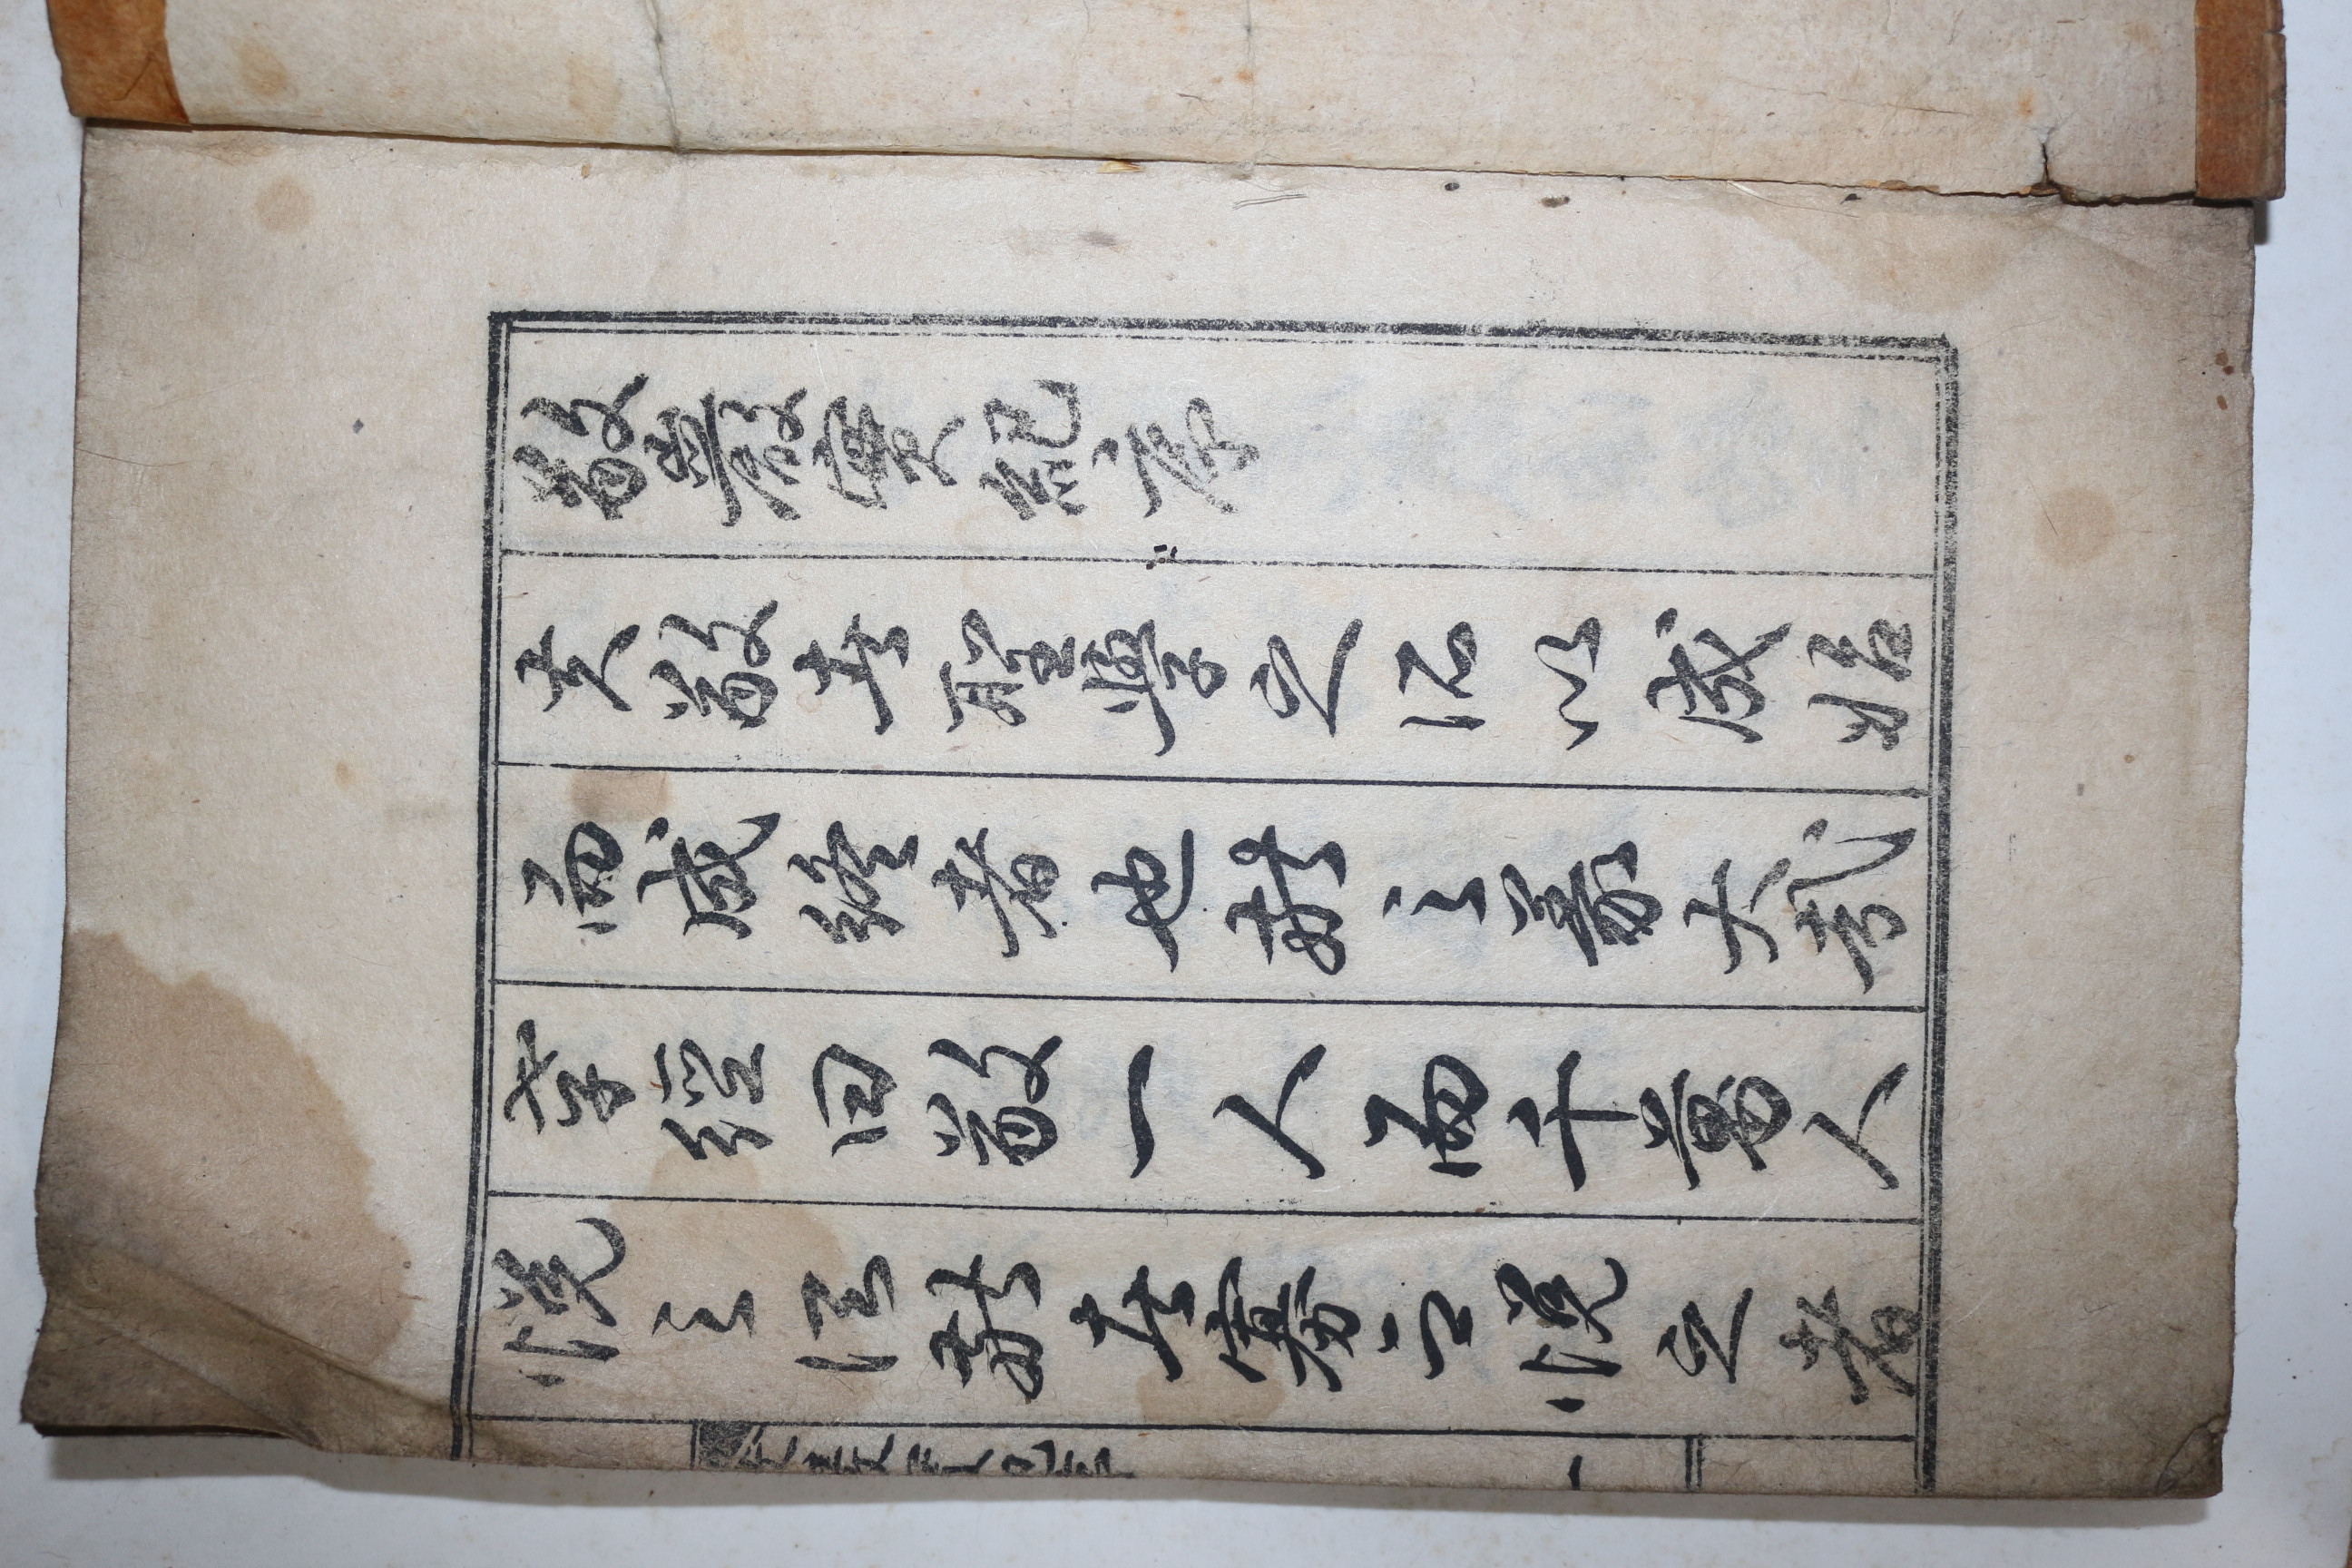 敬巖實紀序
夫敬者聖學之所以成始
而成終者也敬之義大哉
孝經曰敬一人而千萬人
悅之所敬者寡而悅之者
一